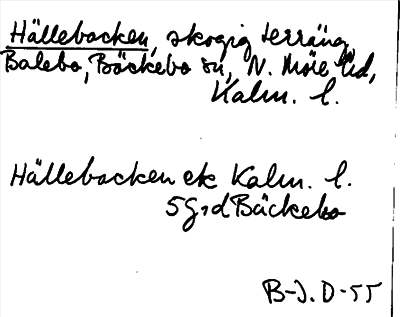 Hällebacken, skogig terräng,
Balebo, Bäckebo sn, N. Möre hd,
Kalm. l.
Hällebacken ek Kalm. l.
5G, d Bäckebo
B-J. D-55